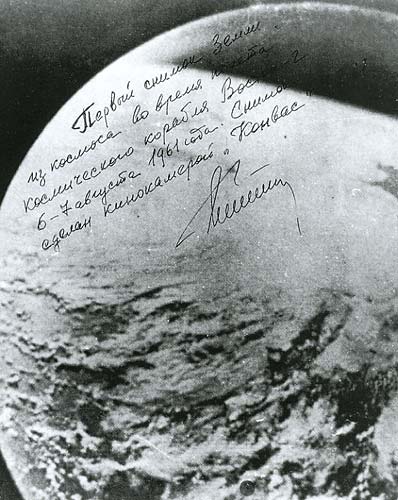 Первый снимок Земли
из космоса во время полета
космического корабля Восток-2
6-7 августа 1961 года. Снимок
сделан кинокамерой "Конвас"